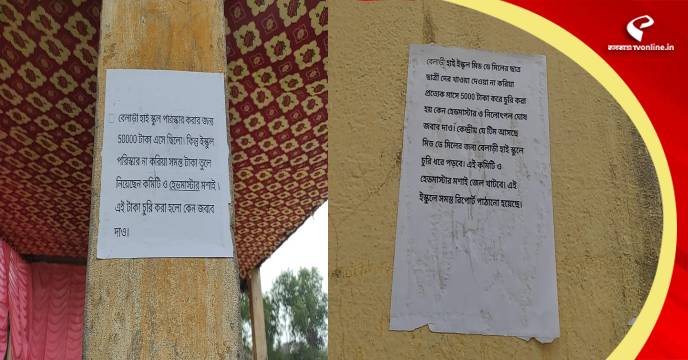 বেলাড়ী হাই স্কুল পরিস্কার করার জন্য
50000 টাকা এসে ছিলো। কিন্তু ইস্কুল
পরিস্কার না করিয়া সমস্ত টাকা তুলে
নিয়েছেন কমিটি ও হেডমাস্টার মশাই
এই টাকা চুরি করা হলো কেন জবাব
দাও।
বেলাড়ী হাই ইস্কুল মিড ডে মিলের ছাত্র
ছাত্রী দের খাওয়া দেওয়া না করিয়া
প্রত্যেক মাসে 5000 টাকা করে চুরি করা
হয় কেন হেডমাস্টার ও নিলোৎপল ঘোষ
জবাব দাও। কেন্দ্রীয় যে টিম আসছে
মিড ডে মিলের জন্য বেলাড়ী হাই স্কুলে
চুরি ধরে পড়বে। এই কমিটি ও
হেডমাস্টার মশাই জেল খাটবে। এই
ইস্কুলে সমস্ত রিপোর্ট পাঠানো হয়েছে।
কলকাতা TVonline.in